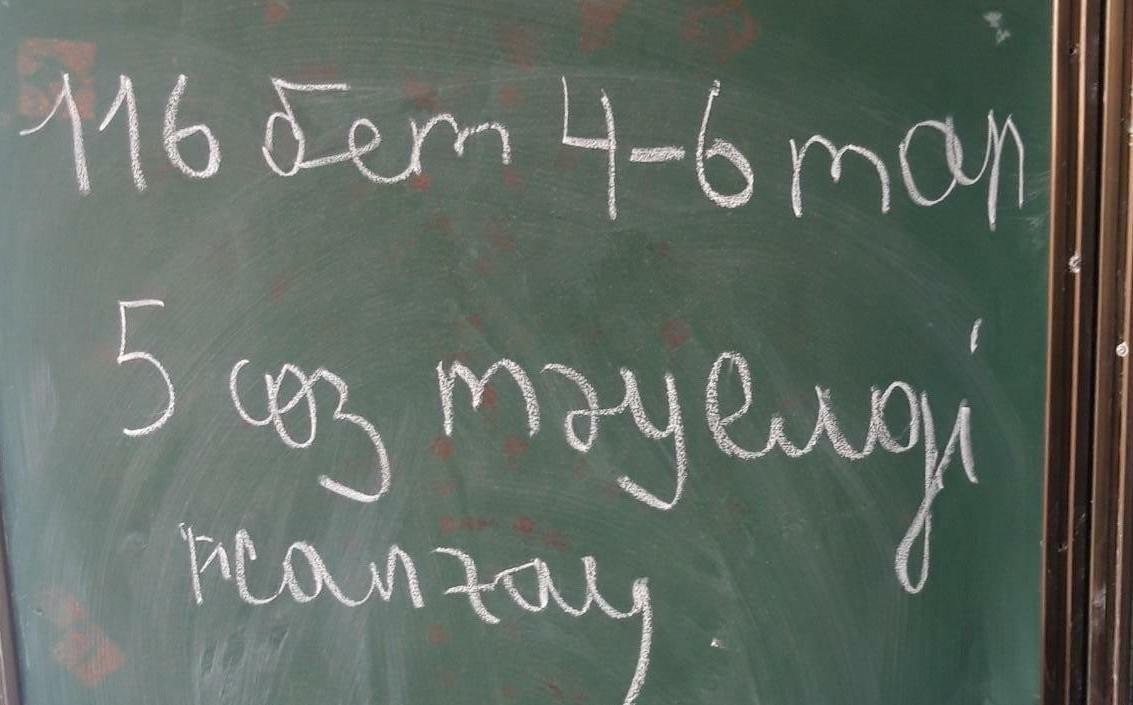 116 бет 4-6 тап
5 сөз тәуелді
жалғау